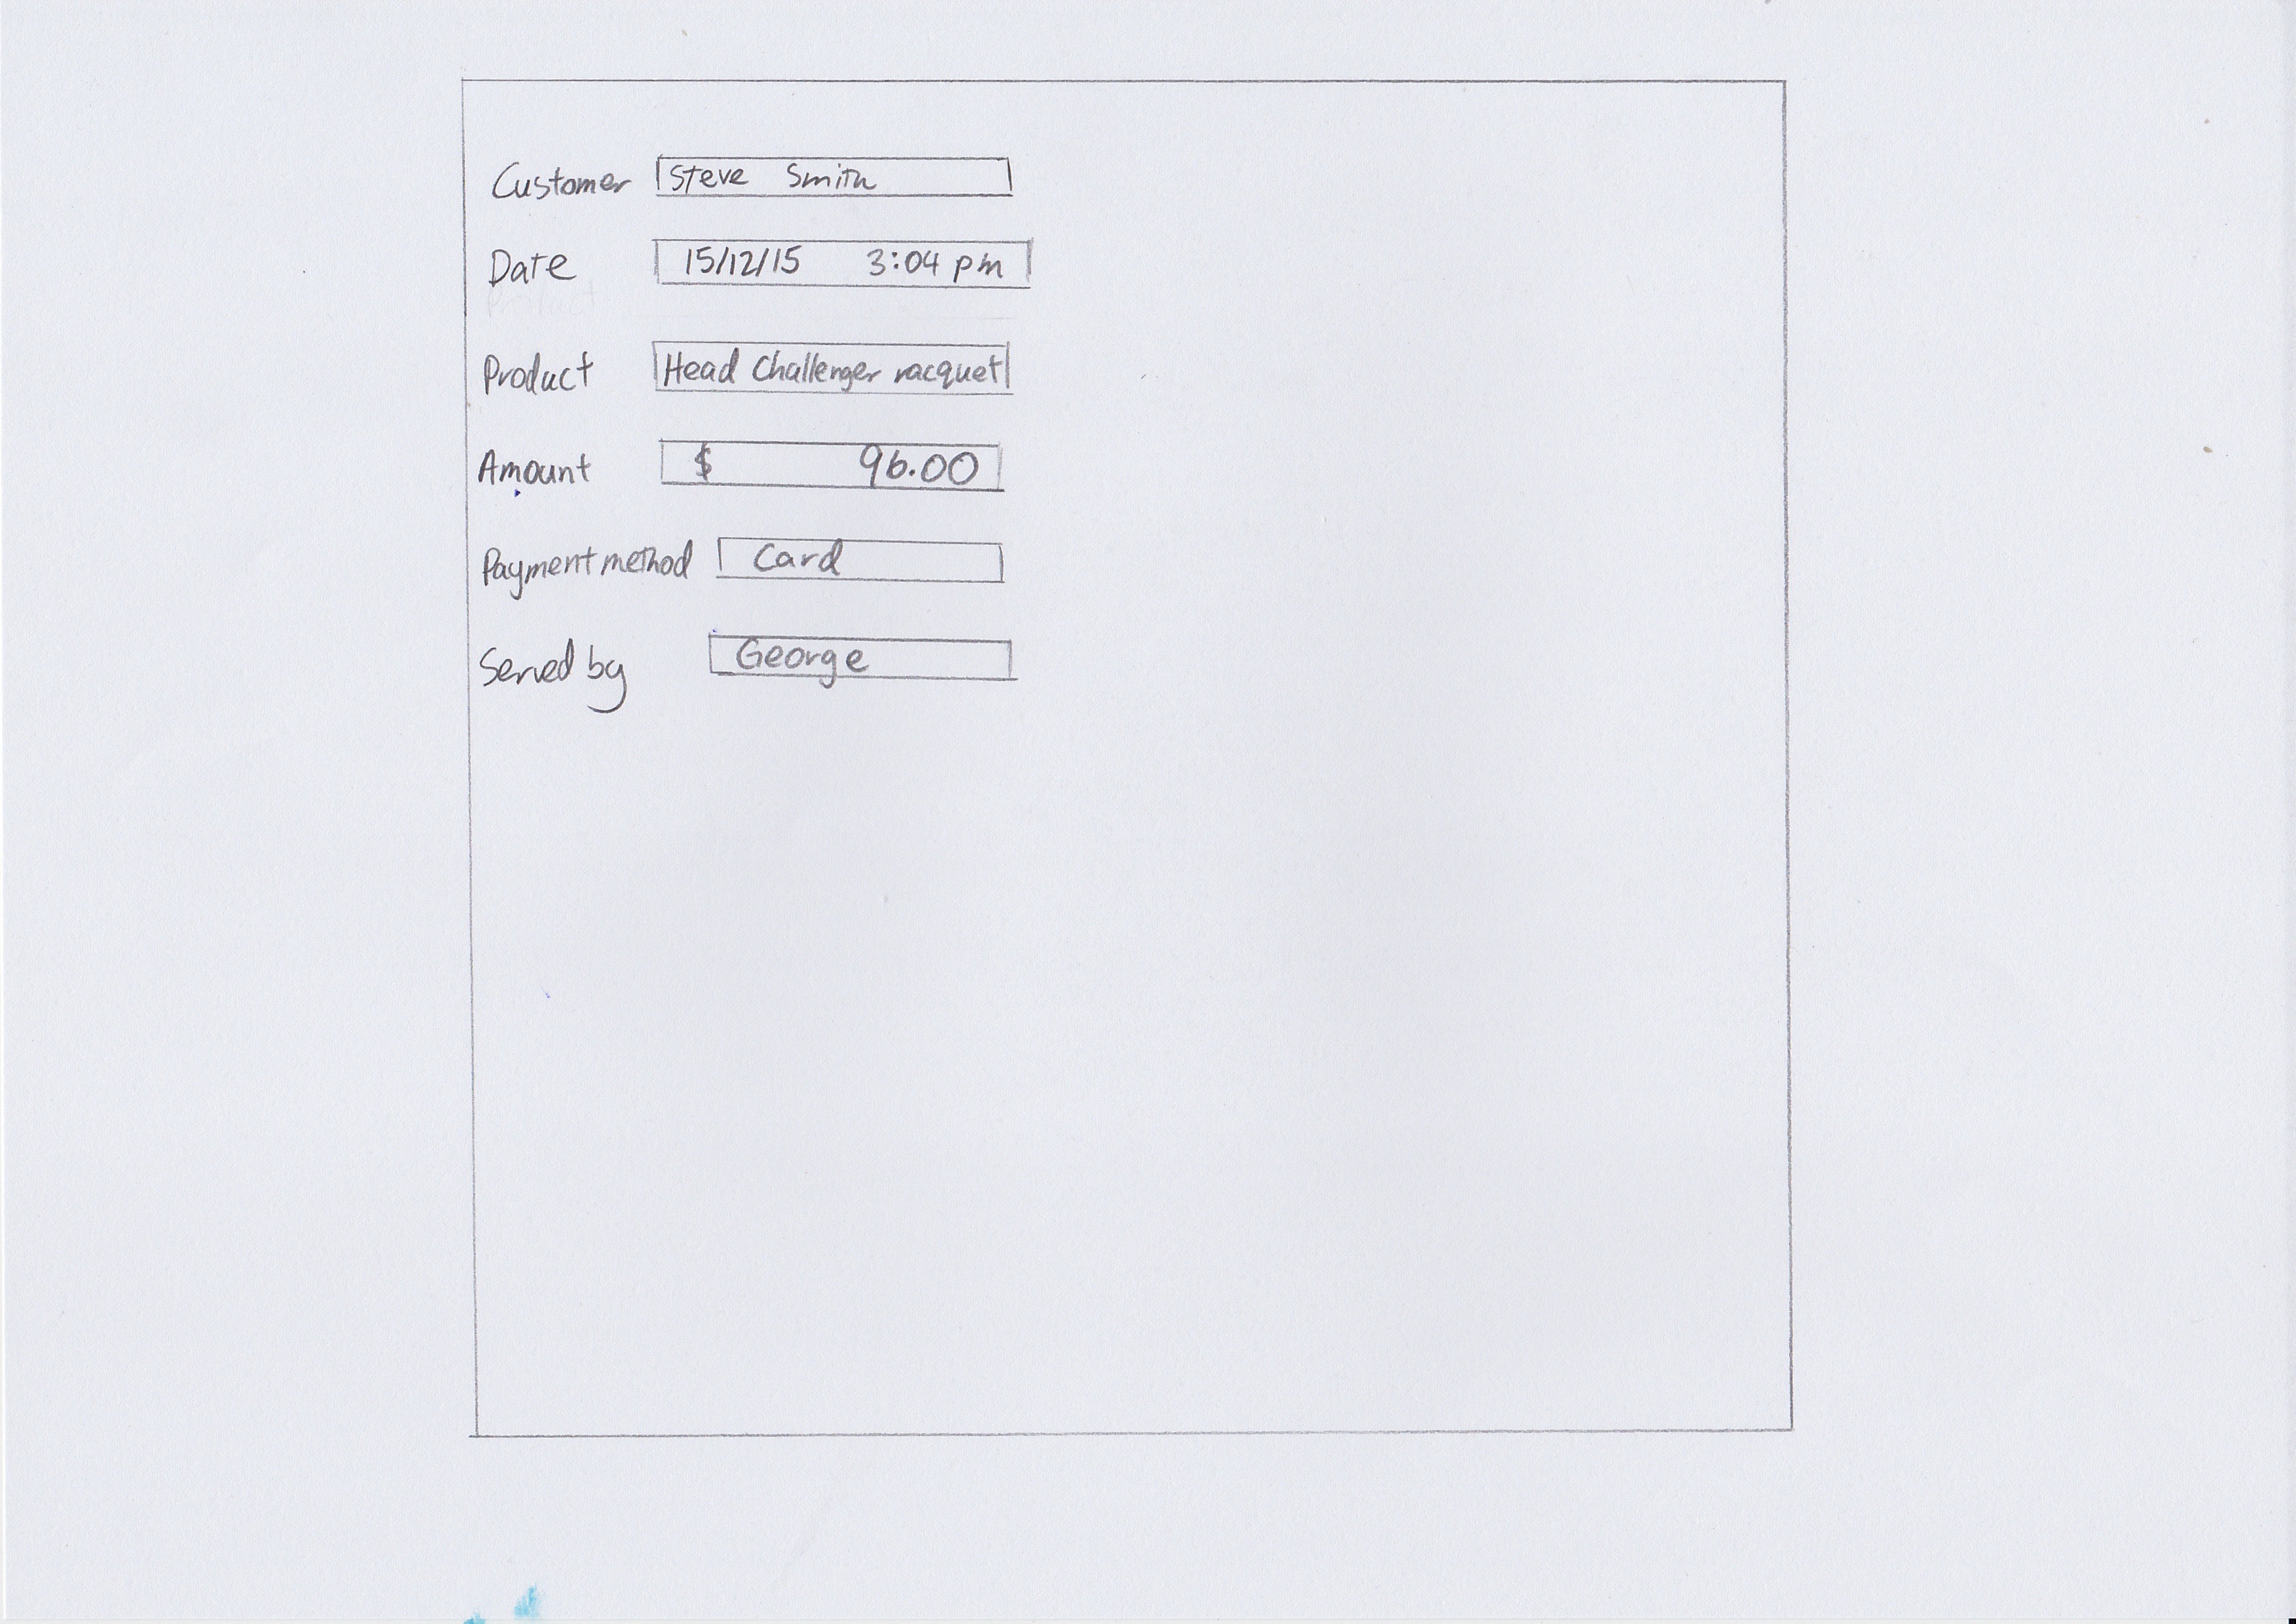 Customer Steve Smith
Date 15/12/15 3:04 pm
Product Head Challenger racquet
Amount $ 96.00
Payment method Card
Served by George